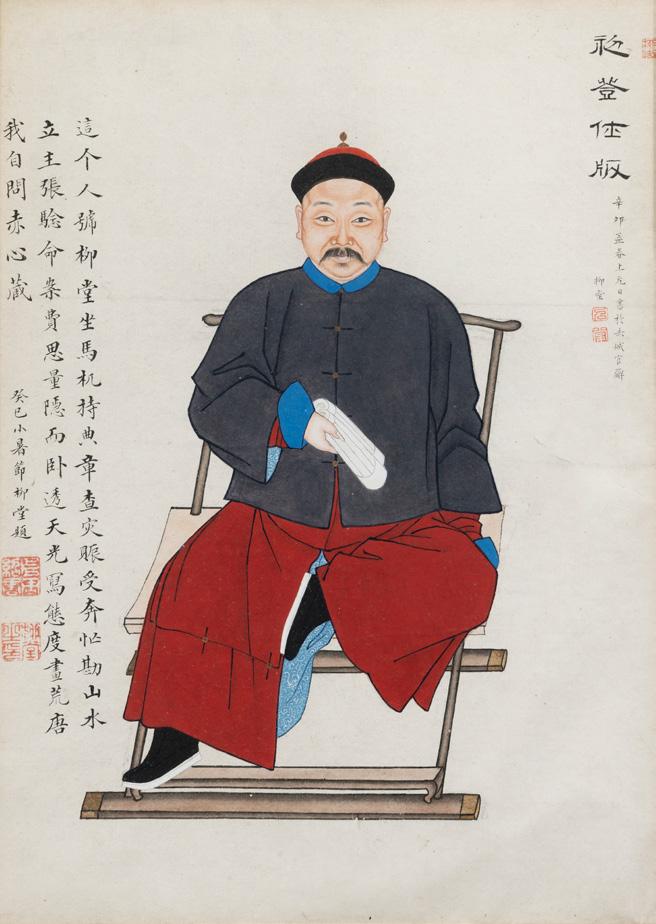 初登仕版
辛卯孟春上元日書於赤城官廨
柳堂
這个人號柳堂坐馬机持典章查灾賑受奔忙勘山水
立主張驗命案費思量隱而卧透天光寫態度畫荒唐
我自問赤心藏
癸巳小暑節柳堂題